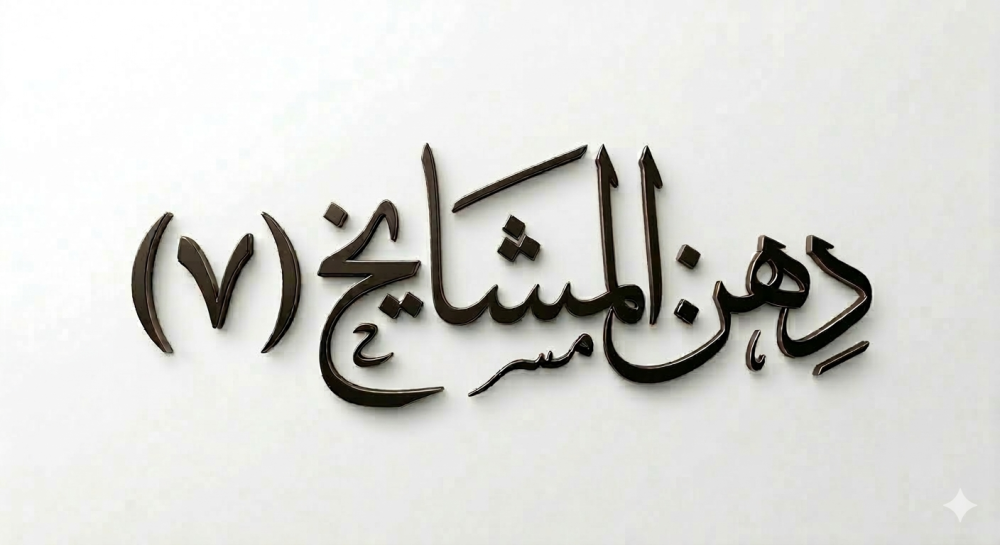 دهن المشايخ (٧)